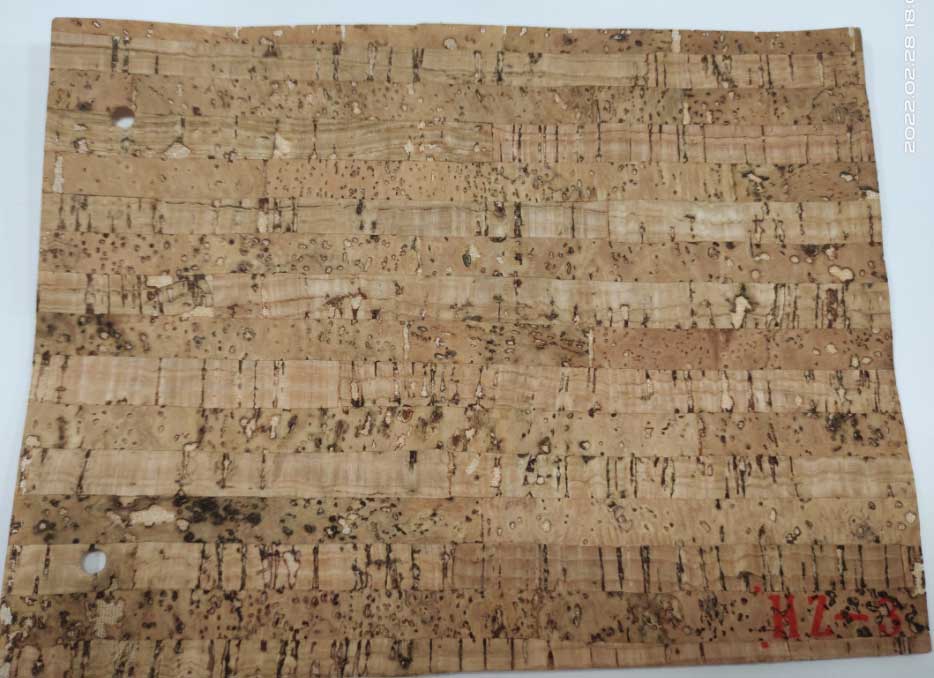 2022.02.28 18:0
HZ-3